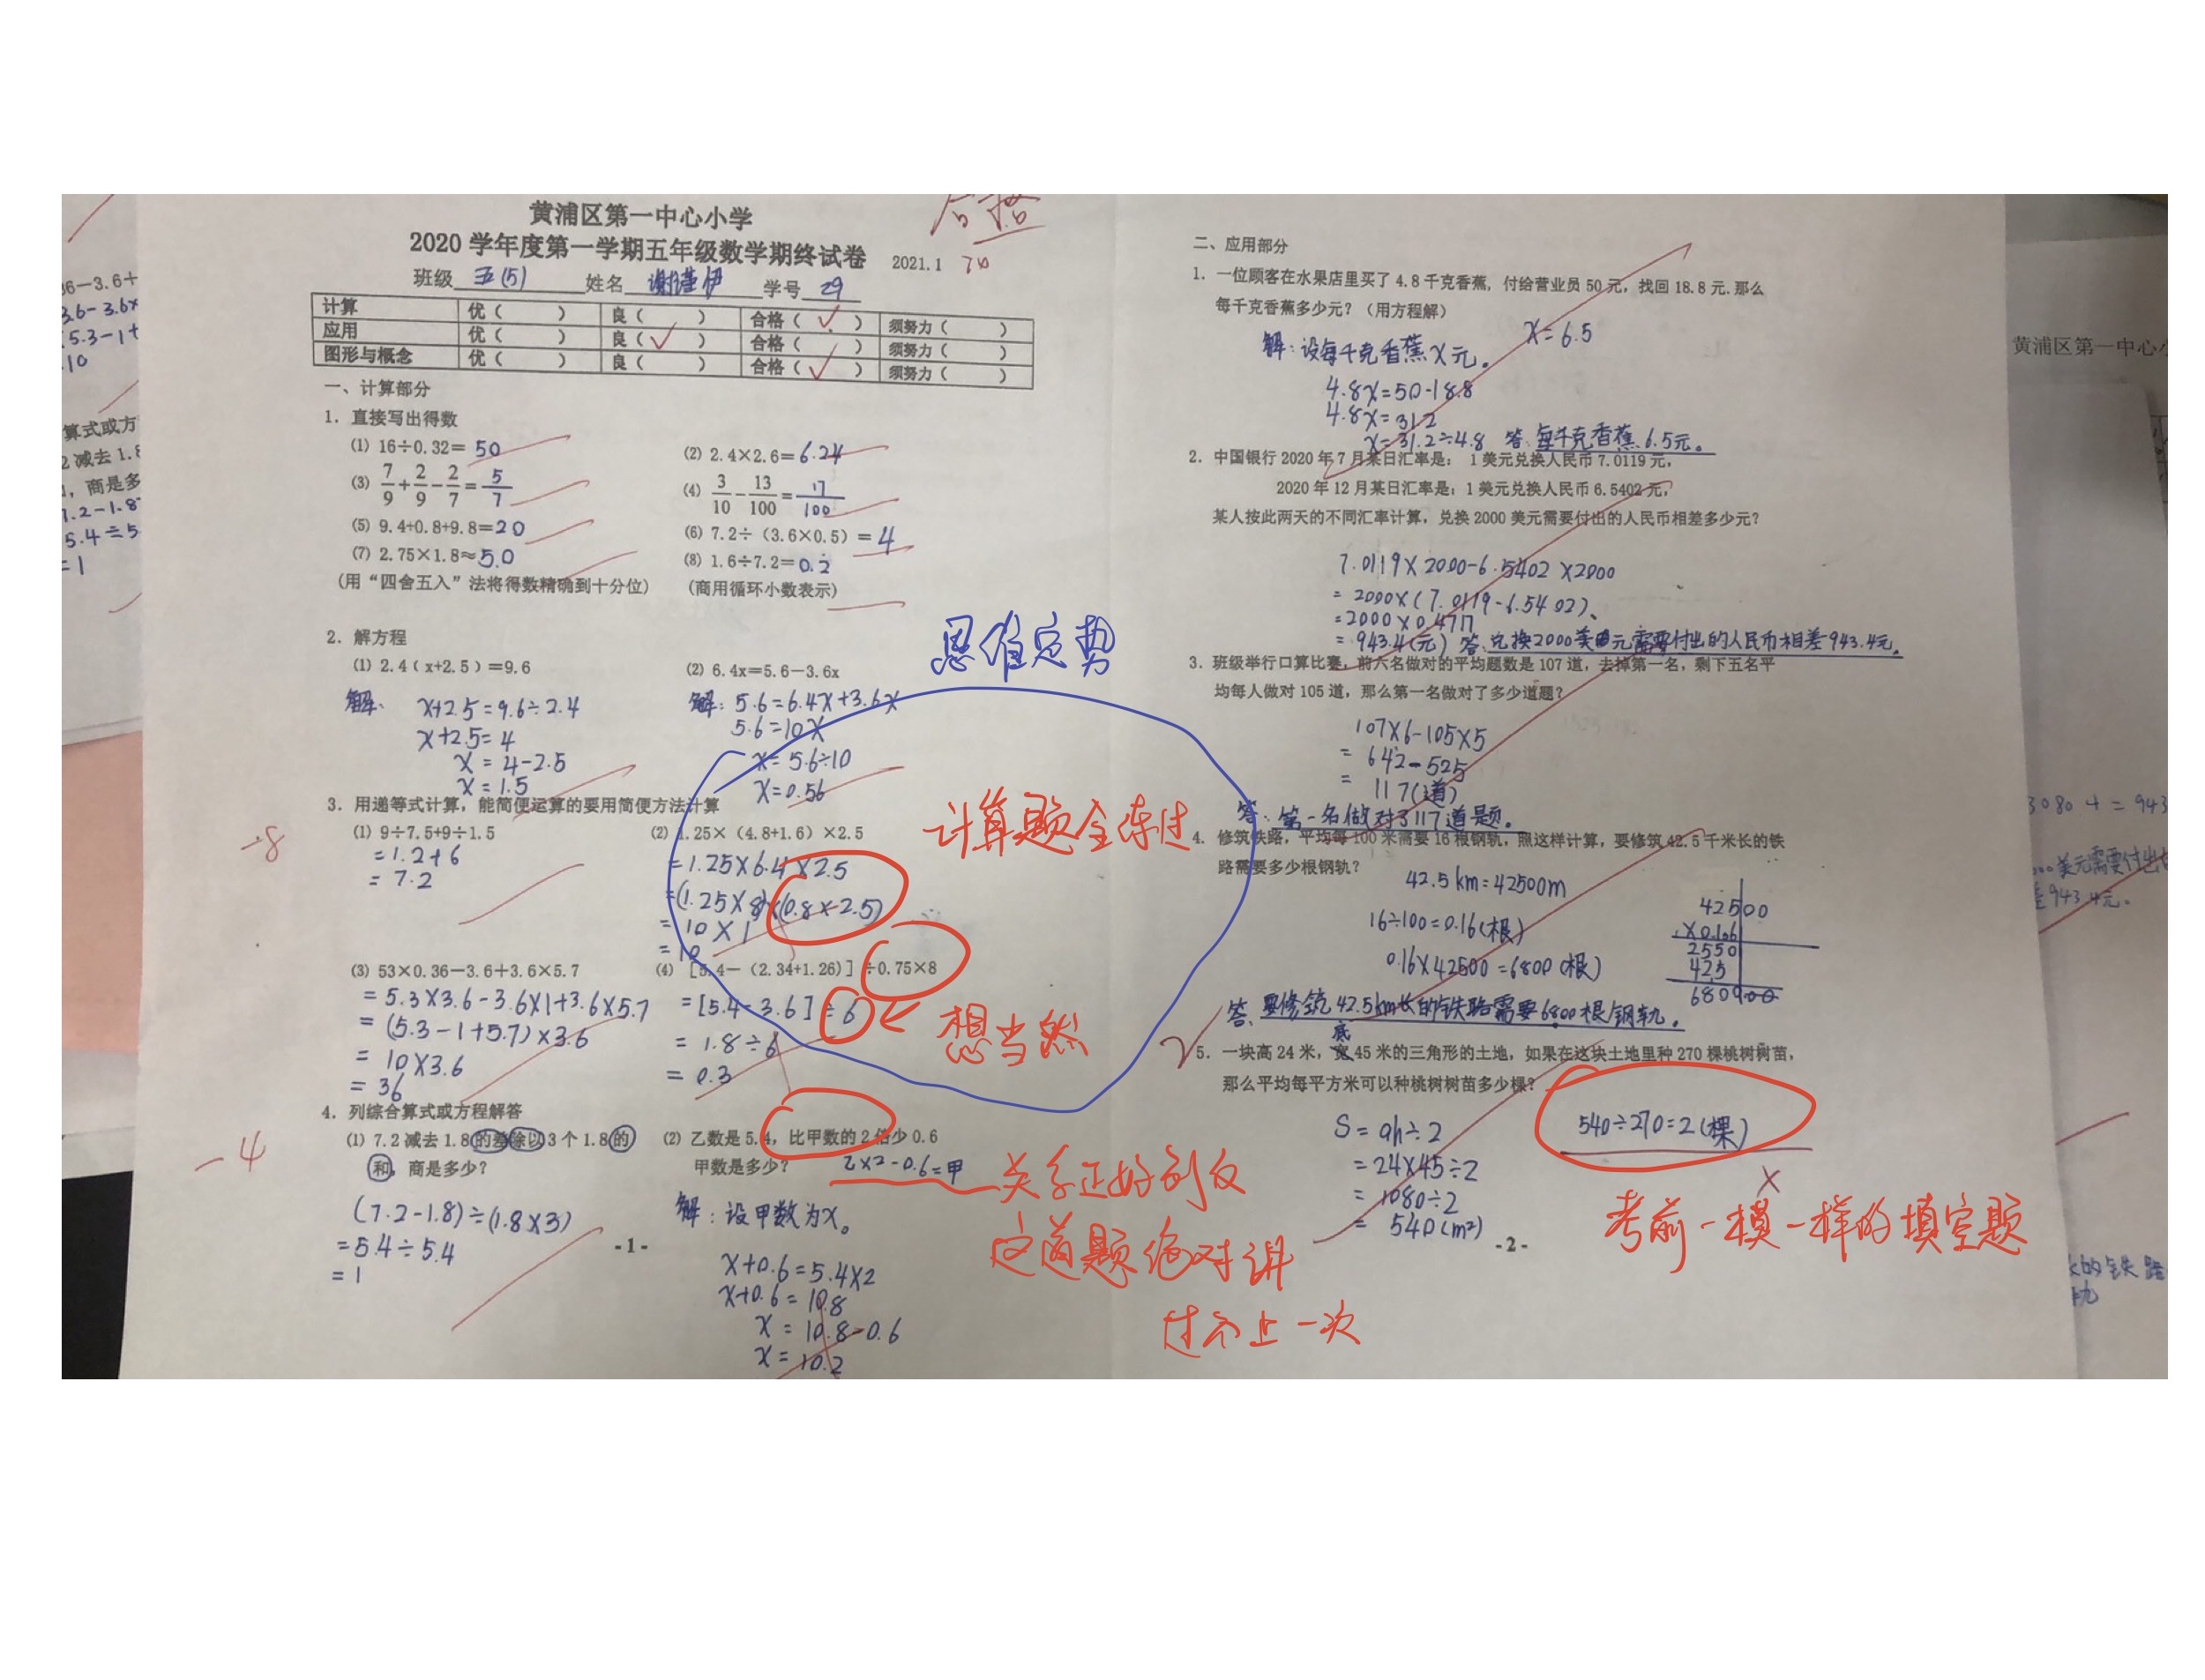 黄浦区第一中心小学
2020 学年度第一学期五年级数学期终试卷 2021.1
合格
班级 五(5) 姓名 谢谨伊 学号 29
计算 优（ ） 良（ ） 合格（ ✓ ） 须努力（ ）
应用 优（ ） 良（ ✓ ） 合格（ ） 须努力（ ）
图形与概念 优（ ） 良（ ） 合格（ ✓ ） 须努力（ ）
一、计算部分
1. 直接写出得数
(1) 16÷0.32= 50 (2) 2.4×2.6= 6.24
(3) 7/9+2/9-2/7= 5/7 (4) 3/10-13/100= 17/100
(5) 9.4+0.8+9.8= 20 (6) 7.2÷（3.6×0.5）= 4
(7) 2.75×1.8≈ 5.0 (8) 1.6÷7.2= 0.2̇
(用“四舍五入”法将得数精确到十分位) (商用循环小数表示)
2. 解方程
(1) 2.4（x+2.5）=9.6
解:
x+2.5=9.6÷2.4
x+2.5=4
x=4-2.5
x=1.5
(2) 6.4x=5.6-3.6x
解: 5.6=6.4x+3.6x
5.6=10x
x=5.6÷10
x=0.56
思维定势
3. 用递等式计算，能简便运算的要用简便方法计算
-8
(1) 9÷7.5+9÷1.5
=1.2+6
=7.2
(2) 1.25×（4.8+1.6）×2.5
=1.25×6.4×2.5
=(1.25×8)×(0.8×2.5)
=10×1
=10
计算题全练过
(3) 53×0.36-3.6+3.6×5.7
=5.3×3.6-3.6×1+3.6×5.7
=(5.3-1+5.7)×3.6
=10×3.6
=36
(4) [5.4-（2.34+1.26）]÷0.75×8
=[5.4-3.6]÷6
=1.8÷6
=0.3
想当然
4. 列综合算式或方程解答
-4
(1) 7.2 减去 1.8 的差除以 3 个 1.8 的
和，商是多少？
(7.2-1.8)÷(1.8×3)
=5.4÷5.4
=1
(2) 乙数是 5.4，比甲数的 2 倍少 0.6
甲数是多少？
解:设甲数为x。
x+0.6=5.4×2
x+0.6=10.8
x=10.8-0.6
x=10.2
关系正好列反
这道题绝对讲
过不止一次
-1-
二、应用部分
1. 一位顾客在水果店里买了 4.8 千克香蕉, 付给营业员 50 元，找回 18.8 元.那么
每千克香蕉多少元？（用方程解）
解:设每千克香蕉x元。
4.8x=50-18.8
4.8x=31.2
x=31.2÷4.8
x=6.5
答:每千克香蕉6.5元。
2. 中国银行 2020 年 7 月某日汇率是： 1 美元兑换人民币 7.0119 元，
2020 年 12 月某日汇率是：1 美元兑换人民币 6.5402 元，
某人按此两天的不同汇率计算，兑换 2000 美元需要付出的人民币相差多少元？
7.0119×2000-6.5402×2000
=2000×(7.0119-6.5402)
=2000×0.4717
=943.4(元) 答:兑换2000美元需要付出的人民币相差943.4元。
3. 班级举行口算比赛，前六名做对的平均题数是 107 道，去掉第一名，剩下五名平
均每人做对 105 道，那么第一名做对了多少道题？
107×6-105×5
=642-525
=117(道)
答:第一名做对了117道题。
4. 修筑铁路，平均每 100 米需要 16 根钢轨，照这样计算，要修筑 42.5 千米长的铁
路需要多少根钢轨？
42.5km=42500m
16÷100=0.16(根)
0.16×42500=6800(根)
42500
×0.16
2550
425
680000
答:要修筑42.5km长的铁路需要6800根钢轨。
底
5. 一块高 24 米，宽 45 米的三角形的土地，如果在这块土地里种 270 棵桃树树苗，
那么平均每平方米可以种桃树树苗多少棵？
S=ah÷2
=24×45÷2
=1080÷2
=540(m²)
540÷270=2(棵)
考前一模一样的填空题
-2-
黄浦区第一中心小